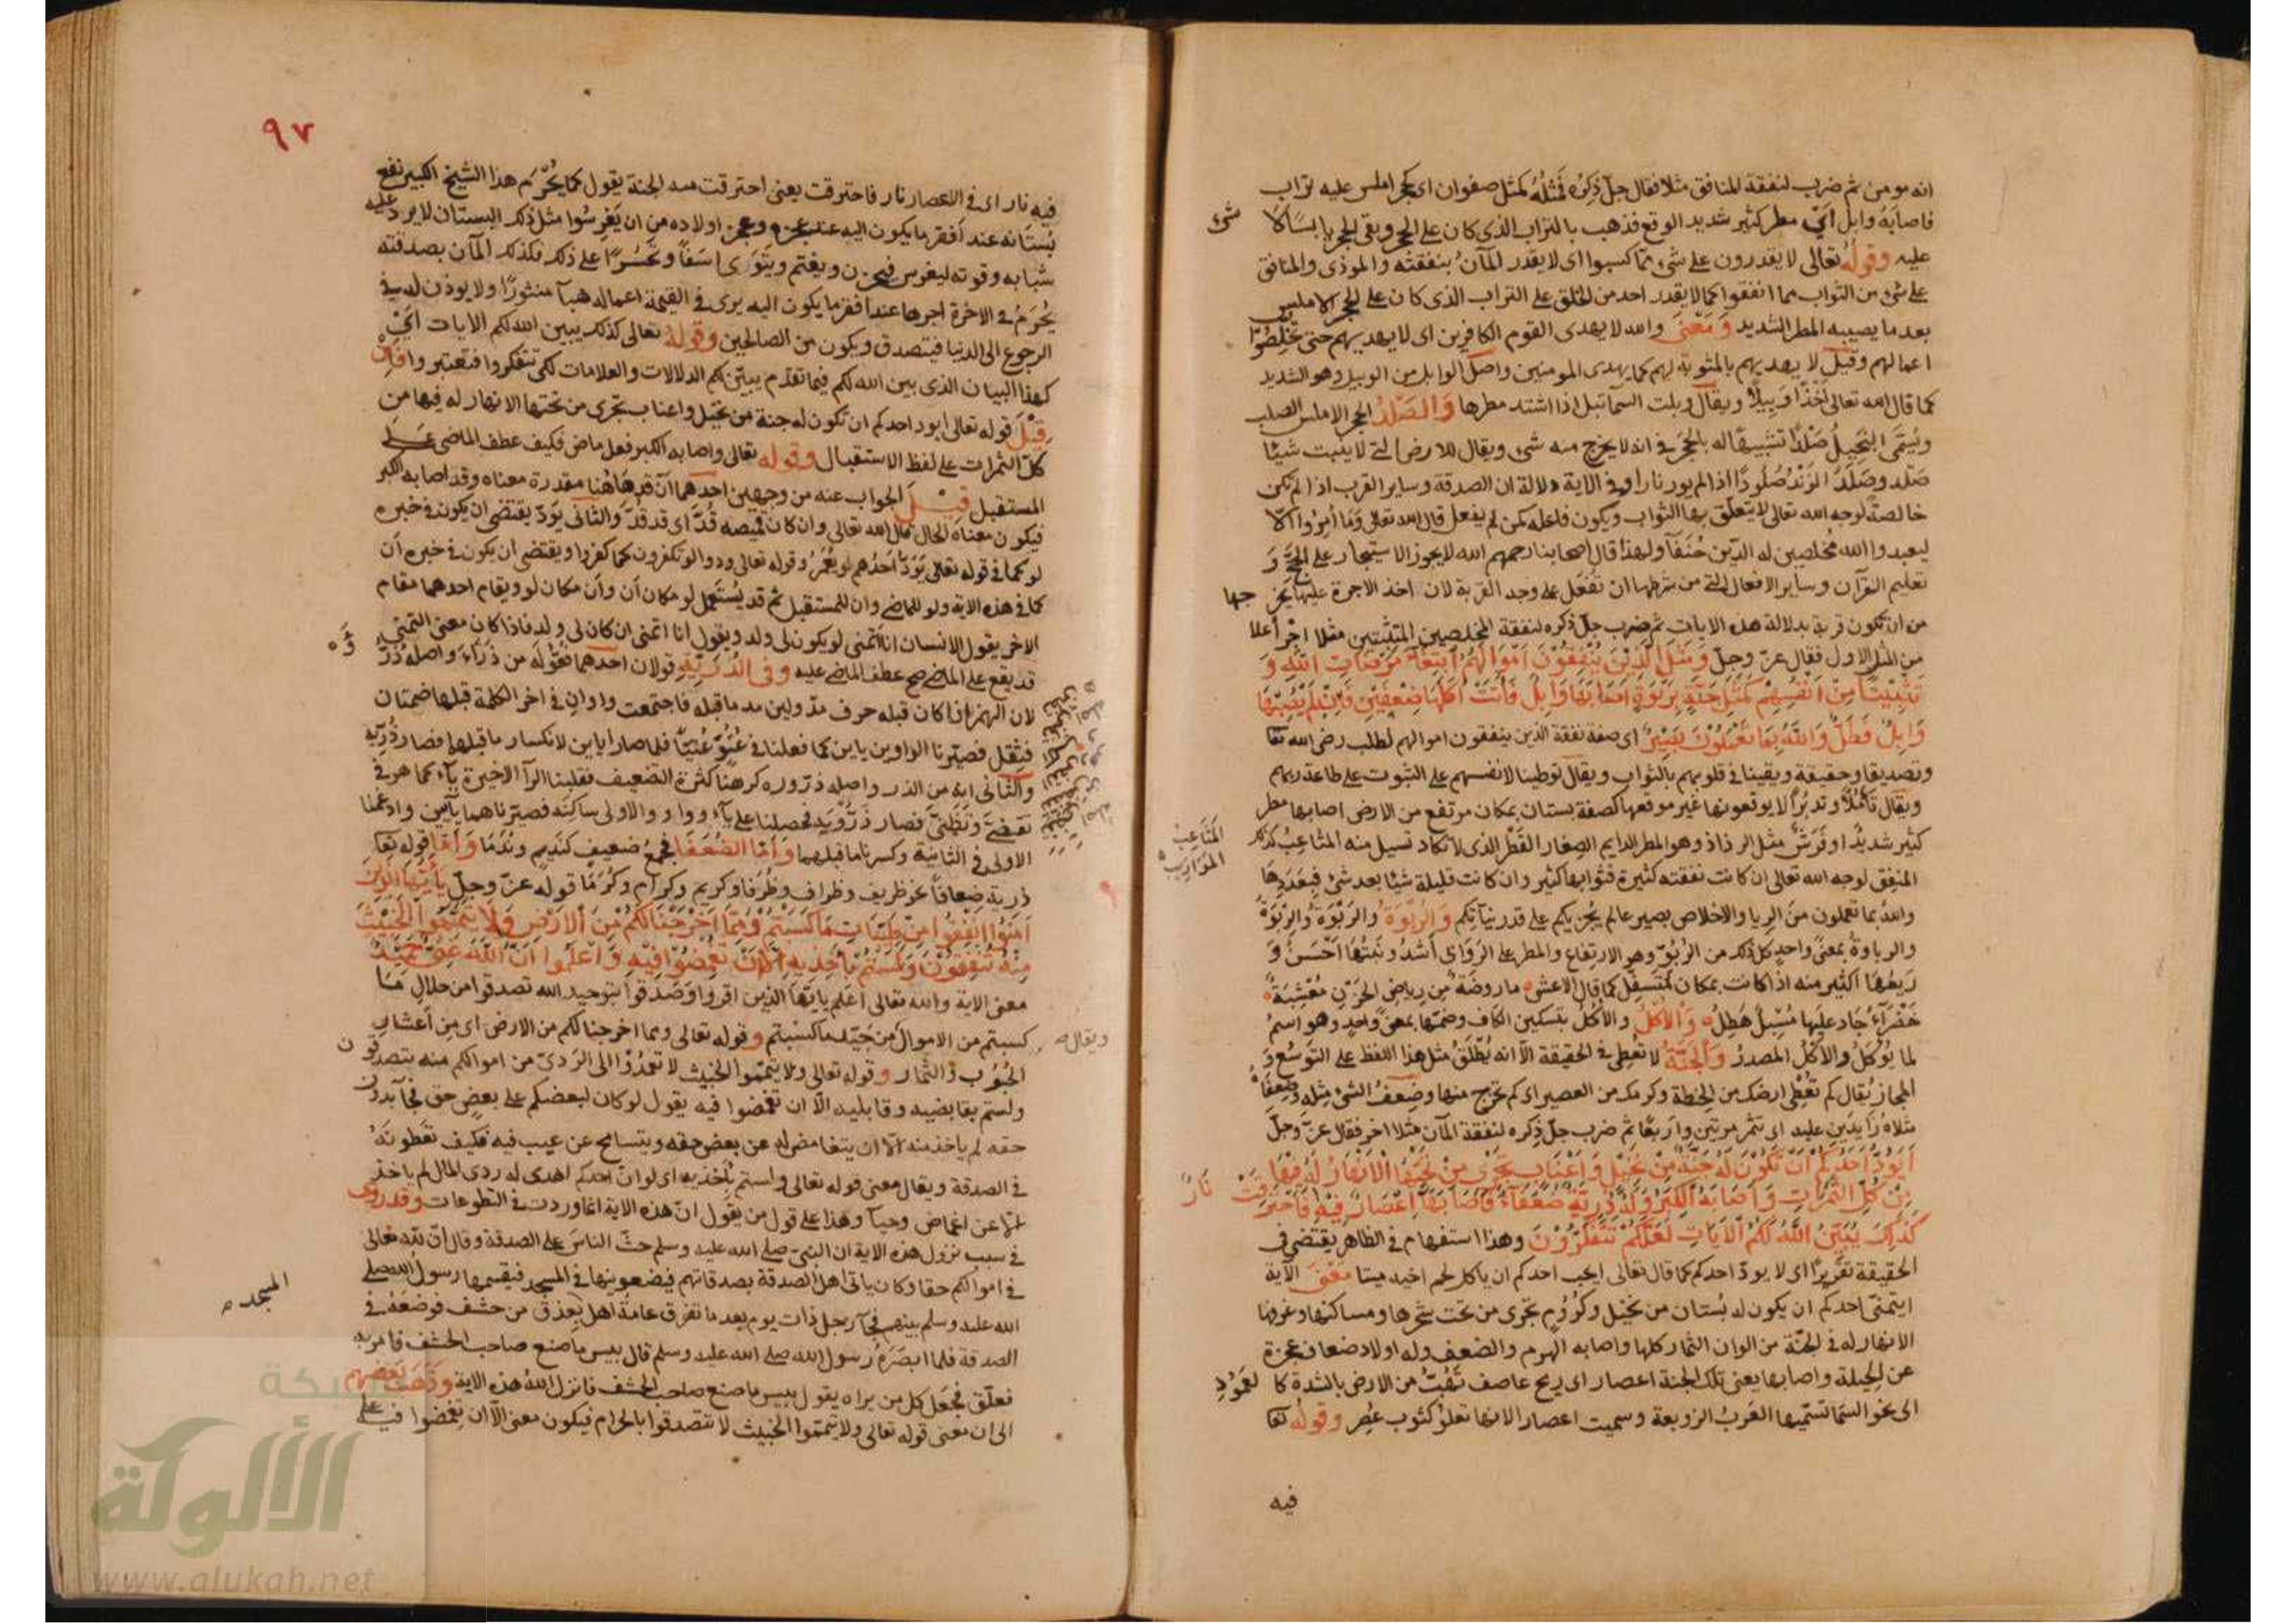 انه مومن ثم ضرب لنفقة المنافق مثلا فقال جلّ ذِكرُه فَمَثَلُهُ كمثل صفوان اى كحجر املس عليه تراب
فاصابَهُ وابل اَيْ مطر كثير شديد الوقع فذهب بالتراب الذى كان على الحجر وبقى الحجر يابسًا لا شىء
عليه وقولُهُ تعالى لا يقدرون على شىء ممّا كسبوا اى لا يقدر المانّ بنفقته والموذى والمنافق
على شىء من الثواب مما انفقوا كما لا يقدر احد من الخلق على التراب الذى كان على الحجر الاملس
بعد ما يصيبه المطر الشديد وَمَعْنَى والله لا يهدى القوم الكافرين اى لا يهديهم حتى يخلِصُوا
اعمالهم وقيل لا يهديهم بالمثوبة لهم كما يهدى المومنين واصل الوابل من الوبيل وهو الشديد
كما قال الله تعالى اَخْذًا وَبِيلًا ويقال وبلت السمآ تبل اذا اشتد مطرها وَالصَّلْدُ الحجر الاملس الصلب
ويُسَمَّى البَخِيلُ صَلْدًا تشبيهًا له بالحجر فى انه لا يخرج منه شىء ويقال للارض التى لا ينبت شيئا
صَلْد وصَلَدَ الزَنْدُ صُلُودًا اذا لم يور نارا وفى الاية دلالة ان الصدقة وساير القرب اذا لم تكن
خالصةً لوجه الله تعالى لا يتعلّق بها الثواب ويكون فاعله كمن لم يفعل قال الله تعالى وَمَا اُمِرُوا اِلّا
ليعبدوا الله مُخلصين له الدّين حُنَفَآ ولهذا قال اصحابنا رحمهم الله لا يجوز الاستيجار على الحَجّ وَ
تعليم القرآن وساير الافعال التى من شرطها ان تُفْعَل على وجه القربة لان اخذ الاجرة عليها يخرجها
من ان تكون قربة بدلالة هذه الايات ثم ضرب جلّ ذكره لنفقة المخلصين المتثبتين مثلا اخر اعلا
من المثل الاول فقال عزّ وجلّ وَمَثَلُ الَّذِينَ يُنْفِقُونَ اَمْوَالَهُمُ ابْتِغَآءَ مَرْضَاتِ اللّٰهِ وَ
تَثْبِيتًا مِنْ اَنْفُسِهِمْ كَمَثَلِ جَنَّةٍ بِرَبْوَةٍ اَصَابَهَا وَابِلٌ فَآتَتْ اُكُلَهَا ضِعْفَيْنِ فَاِنْ لَمْ يُصِبْهَا
وَابِلٌ فَطَلٌّ وَاللّٰهُ بِمَا تَعْمَلُونَ بَصِيرٌ اى صفة نفقة الذين ينفقون اموالهم لطلب رضى الله تعا
وتصديقا وحقيقة ويقينا فى قلوبهم بالثواب ويقال توطينا لانفسهم على الثبوت على طاعة ربهم
ويقال تأمُّلًا وتدبُّرًا لا يوقعونها غير موقعها كصفة بستان بمكان مرتفع من الارض اصابها مطر
كثير شديد او فَرَشّ مثل الرذاذ وهو المطر الدايم الصِغار القَطْر الذى لا تكاد تسيل منه المثاعِبُ كذلك
المَثَاعِبُ
المَوَازِيب
المنفِق لوجه الله تعالى ان كانت نفقته كثيرة فثوابها كثير وان كانت قليلة شيئا بعد شىء فبِقَدرِهَا
واللهُ بما تعملون منَ الرِيا والاخلاص بصير عالم يُجزيكم على قدر نيّآتكم وَالرُبْوَةُ والرَبْوَةُ والرِبْوَةُ
والرباوةُ بمعنًى واحدٍ كل ذلك من الرُبُوِّ وهو الارتفاع والمطر على الرَوابى اَشَدُّ ونَبتُهَا اَحْسَنُ وَ
رَيعُهَا اكثير منه اذا كانت بمكان مُتسفِّل كما قال الاعشى ما روضَةٌ مِن رِياضِ الحَزْنِ مُعْشِبَةٌ
خَضْرَآءُ جَادَ عليها مُسْبِلٌ هَطِلُ وَالاُكُلُ والاُكْلُ بتسكين الكاف وضمّها بمعنًى واحدٍ وهو اسمُ
لما يُؤكَلُ والاَكْلُ المصدرُ وَالْجَنَّةُ لا تعطِى فى الحقيقة الّا انه يُطْلَقُ مثل هذا اللفظ على التوسُّع وَ
المجاز يُقال كم تعْطِى ارضك من الحنطة وكرمك من العصير اى كم تخرج منها وضِعفُ الشىء مِثله وضِعفَاهُ
مثلاهُ زايدَين عليه اى تثمر مرتين واربعًا ثم ضرب جلّ ذِكره لنفقة المآن مثلا اخر فقال عزّ وجلّ
اَيَوَدُّ اَحَدُكُمْ اَنْ تَكُونَ لَهُ جَنَّةٌ مِنْ نَخِيلٍ وَاَعْنَابٍ تَجْرِى مِنْ تَحْتِهَا الْاَنْهَارُ لَهُ فِيهَا
مِنْ كُلِّ الثَّمَرَاتِ وَاَصَابَهُ الْكِبَرُ وَلَهُ ذُرِّيَّةٌ ضُعَفَآءُ فَاَصَابَهَآ اِعْصَارٌ فِيهِ نَارٌ فَاحْتَرَقَتْ
كَذٰلِكَ يُبَيِّنُ اللّٰهُ لَكُمُ الْاٰيَاتِ لَعَلَّكُمْ تَتَفَكَّرُونَ وهذا استفهام فى الظاهر يقتضى فى
الحقيقة تقريرًا اى لا يودّ احدكم كما قال تعالى ايحب احدكم ان ياكل لحم اخيه ميتا مَعْنَى الآية
ايتمنّى احدكم ان يكون له بُستان من نخيل وكُرُوْمٍ تجرى من تحت شجرها ومساكنها وغرفها
الانهار له فى الجنّة من الوان الثمار كلها واصابه الهرم والضعف وله اولاد ضعاف عجزة
عن الحيلة واصابها يعنى تلك الجنة اعصار اى ريح عاصف تَهُبُّ من الارض بالشدة كالعَمُودِ
الى نحو السمآ تسمّيها العَربُ الزوبعة وسميت اعصار الانها تعلُو كثوب عُصِر وقولُهُ تعا
فيه
٩٧
فيه نار اى فى الاعصار نار فاحترقت يعنى احترقت منه الجنة يقول كما يُحْرَم هذا الشيخ الكبير نفع
بُستانه عند اَفقر ما يكون اليه عند عجزه وعجز اولاده من ان يَغرِسُوا مثل ذلك البستان لا يرد عليه
شبابه وقوته ليغرس فيحزن ويغتم ويتوَرى اسَفًا وتَحسُّرًا على ذلك فكذلك المآن بصدقته
يُحْرَمُ فى الاخرة اجرها عند افقر ما يكون اليه يرى فى القيمة اعماله هبآ منثورًا ولا يوذن له فى
الرجوع الى الدنيا فيتصدق ويكون من الصالحين وقولهُ تعالى كذلك يبين الله لكم الايات اَيْ
كهذا البيان الذى بين الله لكم فيما تقدّم يبيّن لكم الدلالات والعلامات لكى تتفكروا فتعتبروا فَاِنْ
قِيْلَ قوله تعالى ايود احدكم ان تكون له جنة من نخيل واعناب تجرى من تحتها الانهار له فيها من
كلّ الثمرات على لفظ الاستقبال وقوله تعالى واصابه الكبر فعل ماض فكيف عطف الماضى على
المستقبل قِيْلَ الجواب عنه من وجهين احدهما اَنَّ قد هَاهُنا مقدرة معناه وقد اصابه الكبر
فيكون معناه الحال قال الله تعالى وان كان قميصه قُدَّ اى قد قدّ والثانى يَوَدّ يقتضى ان يكون فى خبره
لو كما فى قوله تعالى يَوَدُّ اَحَدُهم لو يُعَمَّرُ وقوله تعالى ودوا لو تكفرون كما كفروا ويقتضى ان يكون فى خبره اَن
كما فى هذه الاية ولو للماضى وان للمستقبل ثم قد يُستَعمل لو مكان اَن واَن مكان لو ويقام احدهما مقام
الاخر يقول الانسان انا اتمنى لو يكون لى ولد ويقول انا اتمنى ان كان لى ولد فاذا كان معنى التمنّى
قد يقع على الماضى صح عطف الماضى عليه وفى الذُرِّيَّةِ قولان احدهما فُعُّولَه من ذرَأَ واصله ذُرُّوءَه
لان الهمزة اذا كان قبله حرف مدّ ولين مد ما قبله فاجتمعت واوان فى اخر الكلمة قبلها ضمتان
فثقل فصيّرنا الواوين ياين كما فعلنا فى عُتُوّ عُتِيًّا فلما صارا ياين لانكسار ما قبلها فصار ذُرِّيّه
والثّانى انه من الذر واصله ذرّوره كرهنا كثرة التضعيف فقلبنا الرآ الاخيرة يآء كما هو فى
تقضّى وتظنّى فصار ذرّوية فحصلنا على يآء وواو والاولى ساكنه فصيّرناهما يآيين وادغمنا
الاولى فى الثانية وكسرنا ما قبلهما وَاَمَّا الضُعَفَا فجمع ضعيف كنديم ونُدَمَا وَاَمَّا قوله تعا
ذرية ضعافا نحو ظريف وظراف وظُرَفا وكريم وكرام وكُرَمَا قولُهُ عزّ وجلّ يَآ اَيُّهَا الَّذِينَ
اٰمَنُوٓا اَنْفِقُوا مِنْ طَيِّبَاتِ مَا كَسَبْتُمْ وَمِمَّآ اَخْرَجْنَا لَكُمْ مِنَ الْاَرْضِ وَلَا تَيَمَّمُوا الْخَبِيثَ
مِنْهُ تُنْفِقُونَ وَلَسْتُمْ بِاٰخِذِيهِ اِلَّآ اَنْ تُغْمِضُوا فِيهِ وَاعْلَمُوا اَنَّ اللّٰهَ غَنِىٌّ حَمِيدٌ
معنى الاية والله تعالى اعلم يا ايّها الذين اقروا وَصَدّقوا بتوحيد الله تصدقوا من حلالِ مَا
كسبتم من الاموال من جَيِّد ما كسبتم وقوله تعالى ومما اخرجنا لكم من الارض اى من اَعشارِ
ويقال
الحُبُوْب وَالثمار وقوله تعالى ولا تيمّموا الخبيث لا تعمدُوْا الى الردىّ من اموالكم منه تتصدقون
ولستم بقابضيه وقابليه الّا ان تغمضوا فيه يقول لو كان لبعضكم على بعض حق فجآ بدون
حقه لم ياخذ منه الّا ان يتغامض له عن بعض حقه ويتسامح عن عيب فيه فكيف تعطونَهُ
فى الصدقة ويقال معنى قوله تعالى ولستم بآخذيه اى لو انّ احدكم اهدى له ردى المال لم ياخذ
الّا عن اغماض وحيآ وهذا على قول من يقول انّ هذه الاية انما وردت فى التطوعات وقد روى
فى سبب نزول هذه الاية ان النبىّ صلى الله عليه وسلم حثّ الناسَ على الصدقة وقال اِنّ لله تعالى
فى اموالكم حقا وكان ياتى اهل الصدقة بصدقاتهم فيضعونها فى المسجد فيقسمها رسول الله صلى
المسجد
الله عليه وسلم بينهم فجآ رجل ذات يوم بعد ما تفرق عامة اهل بعذق من حشف فوضعَهُ فى
الصدقة فلما ابصَرَهُ رسول الله صلى الله عليه وسلم قال بيس ما صنع صاحب الحشف فامر به
فعلّق فجعَل كل من يراه يقول بيس ما صنع صاحب الحشف فانزل اللهُ هذه الاية وذَهَبَ بَعضهم
الى ان معنى قوله تعالى ولا تيمّموا الخبيث لا تتصدقوا بالحرام فيكون معنى الّا ان تغمضوا فيه على
شبكة
الألوكة
www.alukah.net